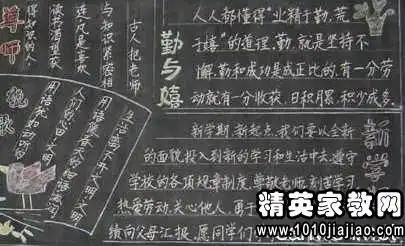 人人都懂得"业精于勤,荒
于嬉"的道理。勤,就是坚持不
懈,勤和成功是成正比的,有一分劳
动就有一分收获,日积月累,积少成多。
勤与嬉
古人把老师
与知识紧密相
连,凡是喜欢
读书渴望获
得知识的人
尊师
新学
新学期,新起点,我们要以全新
的面貌投入到新的学习和生活中去,遵守
学校的各项规章制度,尊敬老师,刻苦学习
热爱劳动,关心他人,勇于
绩向父母汇报,愿同学们
生活离不开文明,文明
精英家教网
www.1010jiajiao.com